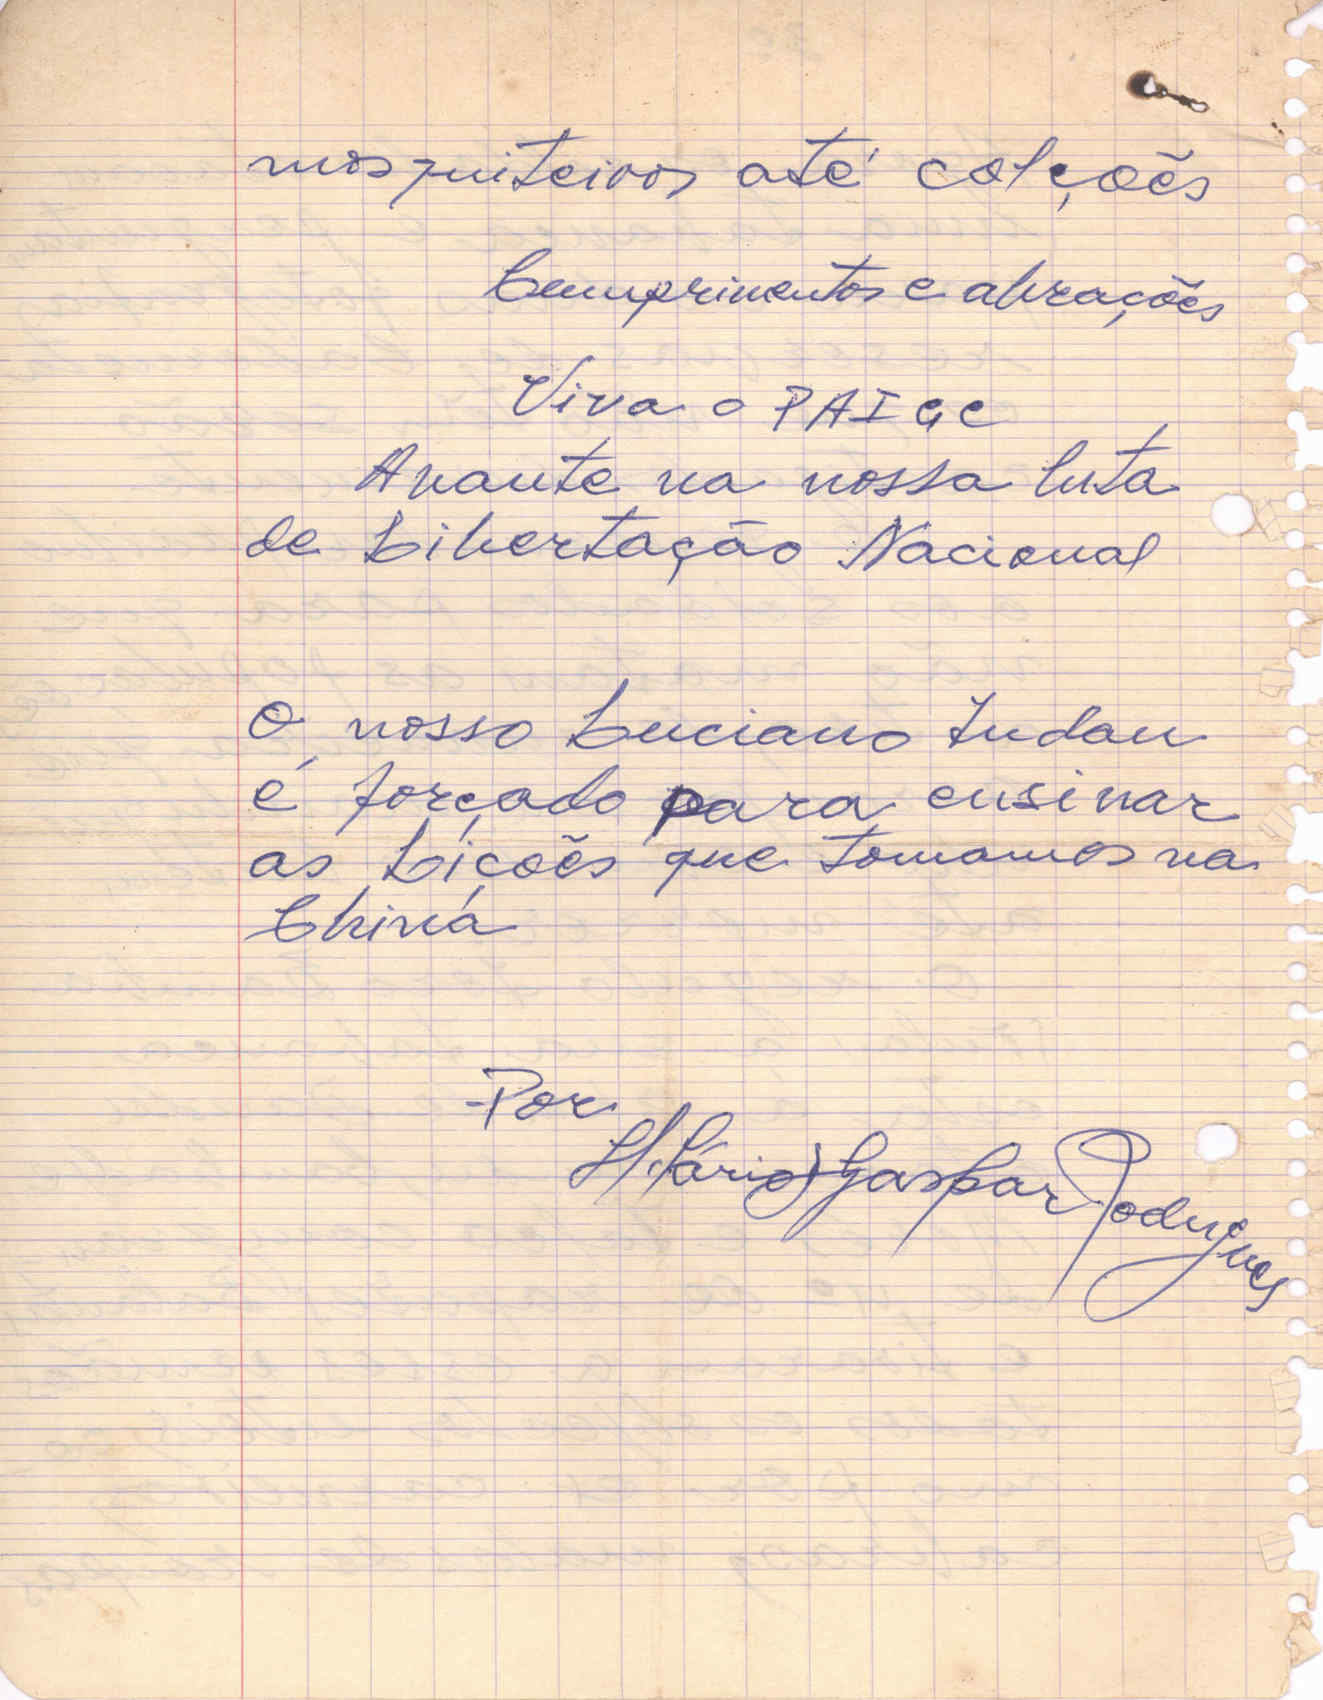 mosquiteiros até calções
Cumprimentos e abrações
Viva o PAIGC
Avante na nossa luta
de Libertação Nacional
O nosso Luciano Tudau
é forçado para ensinar
as Lições que tomamos na
China
Por
Hilário Gaspar Rodrigues